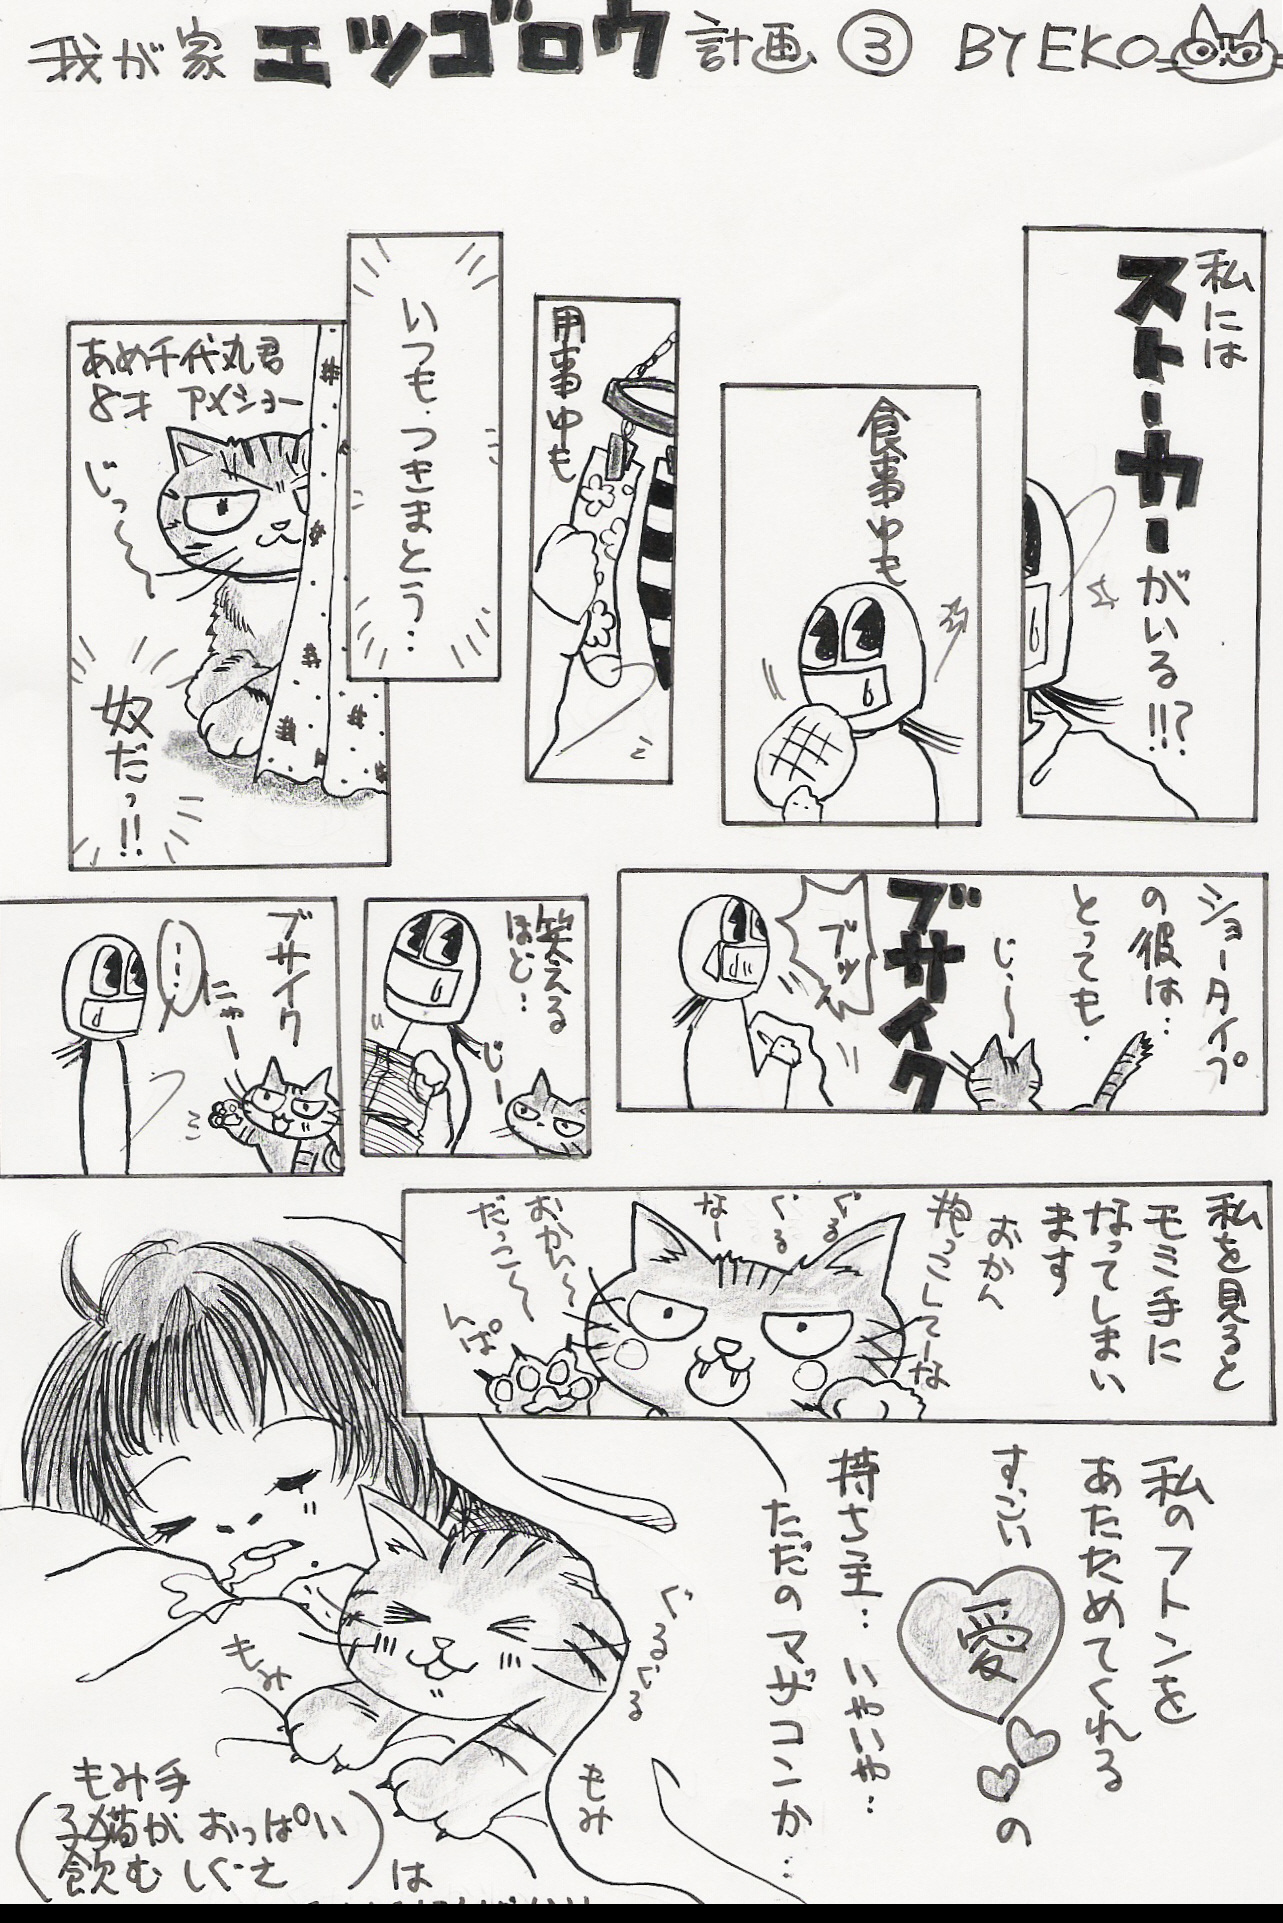 我が家エツゴロウ計画③ BY EKO
私には
ストーカーがいる!!?
食事中も
用事中も
いつも・つきまとう・・
あめ千代丸君
8才 アメショー
じっ〜〜
奴だっ!!
ショータイプ
の彼は・・・
とっても・
じ〜〜
ブサイク
ブッ
笑える
ほど・・
じー
ブサイク
にゃー
・・・
私を見ると
モミ手に
なってしまい
ます
おかん
抱っこしてーな
ぐる
ぐる
なー
おかん〜
だっこ〜〜
しぱ
私のフトンを
あたためてくれる
すっごい
愛
の
持ち主・・いやいや・・
ただのマザコンか・・・
ぐるぐる
もみ
もみ
もみ手
(子猫がおっぱい
飲むしぐさ)は